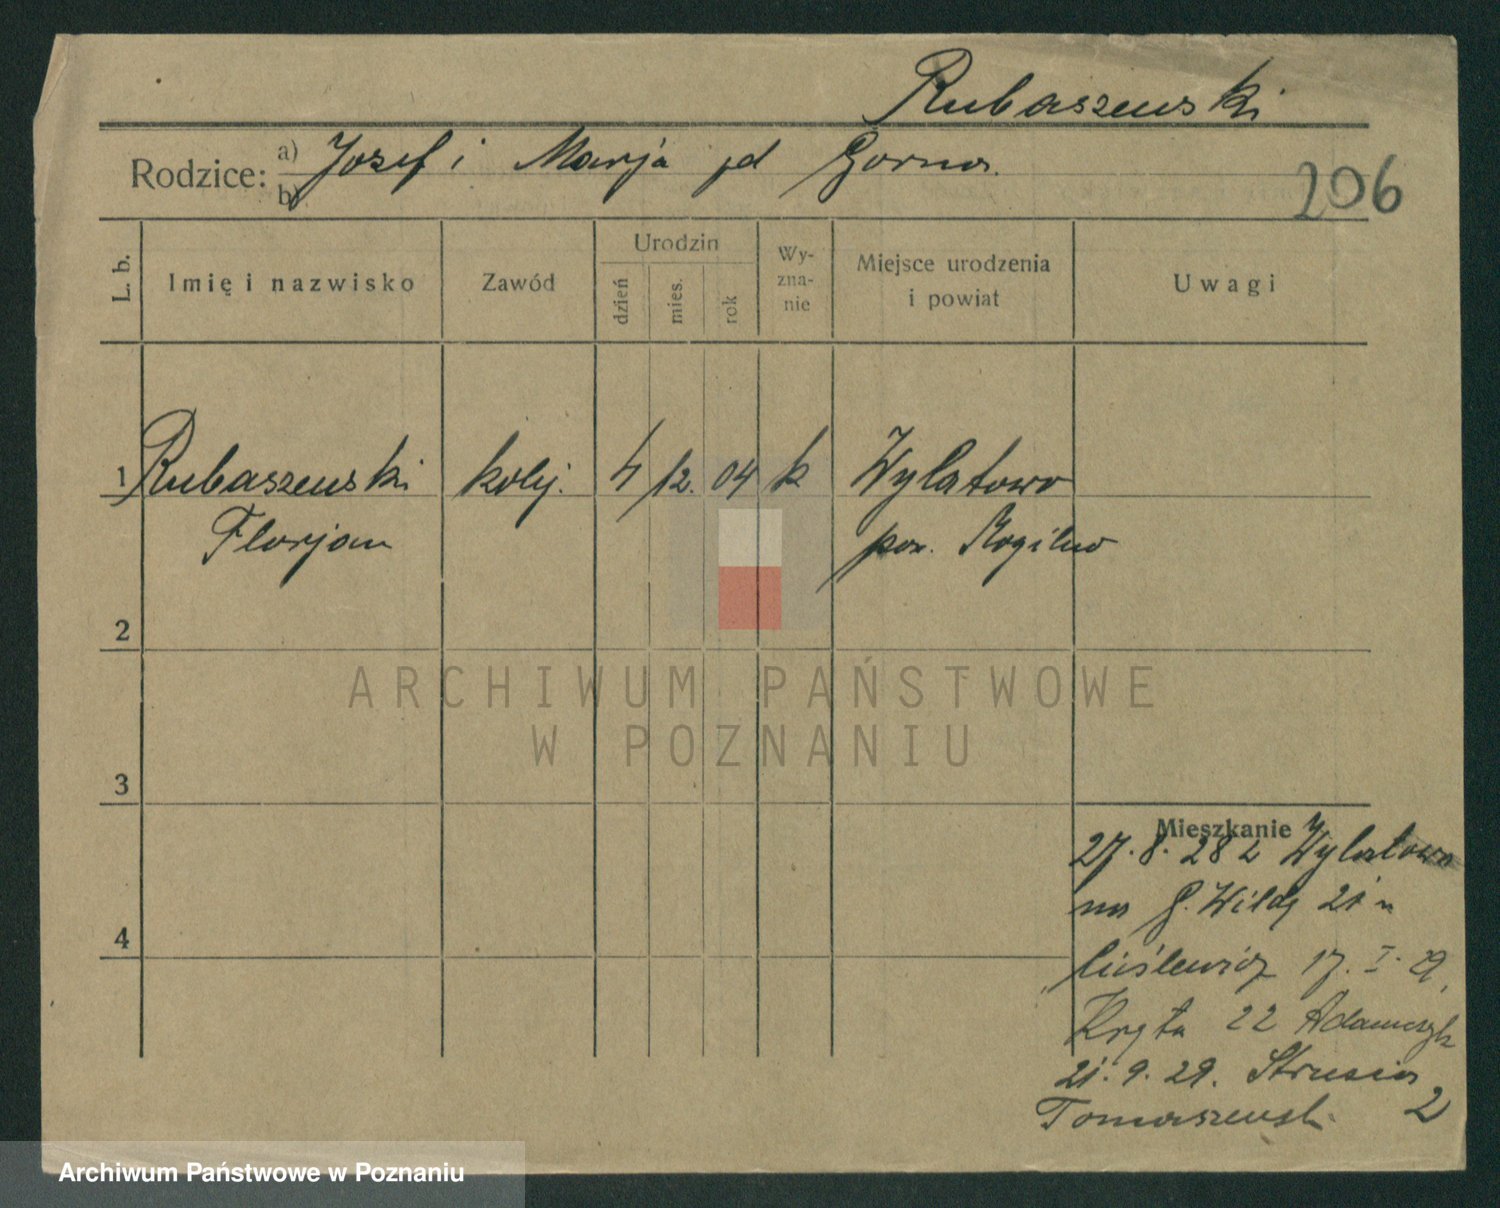 Rubaszewski
Rodzice: a) Josef i Marja pd Gorna.
b)
206
L. b.
Imię i nazwisko
Zawód
Urodzin
dzień
mies.
rok
Wy-
zna-
nie
Miejsce urodzenia
i powiat
Uwagi
1 Rubaszewski kolej. 4 12. 04 k Wylatowo
Florjan pow. Mogilno
2
3
4
ARCHIWUM PAŃSTWOWE
W POZNANIU
Mieszkanie
27.8.28 z Wylatowo
na G. Wildę 21 u
Cieślewicz 17. I. 29,
Kręta 22 Adamczyk
21.9.29. Strusia 2
Tomaszewsk
Archiwum Państwowe w Poznaniu